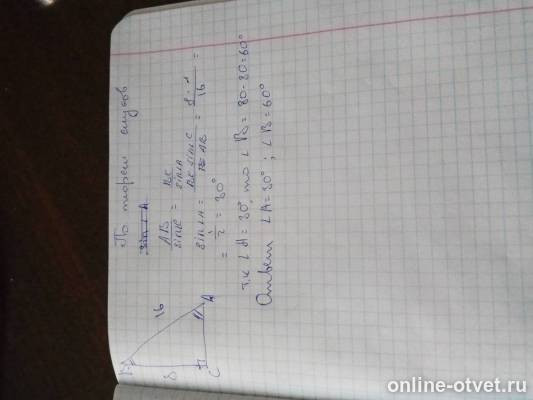 По теорем синусов
AB/sin∠C = BC/sin∠A
sin∠A = BC·sin C/AB = 8·1/16 =
= 1/2 = 30°
т.к ∠A = 30°, то ∠B = 90-30=60°
Ответ ∠A=30°; ∠B=60°
B
16
A
8
C
online-otvet.ru